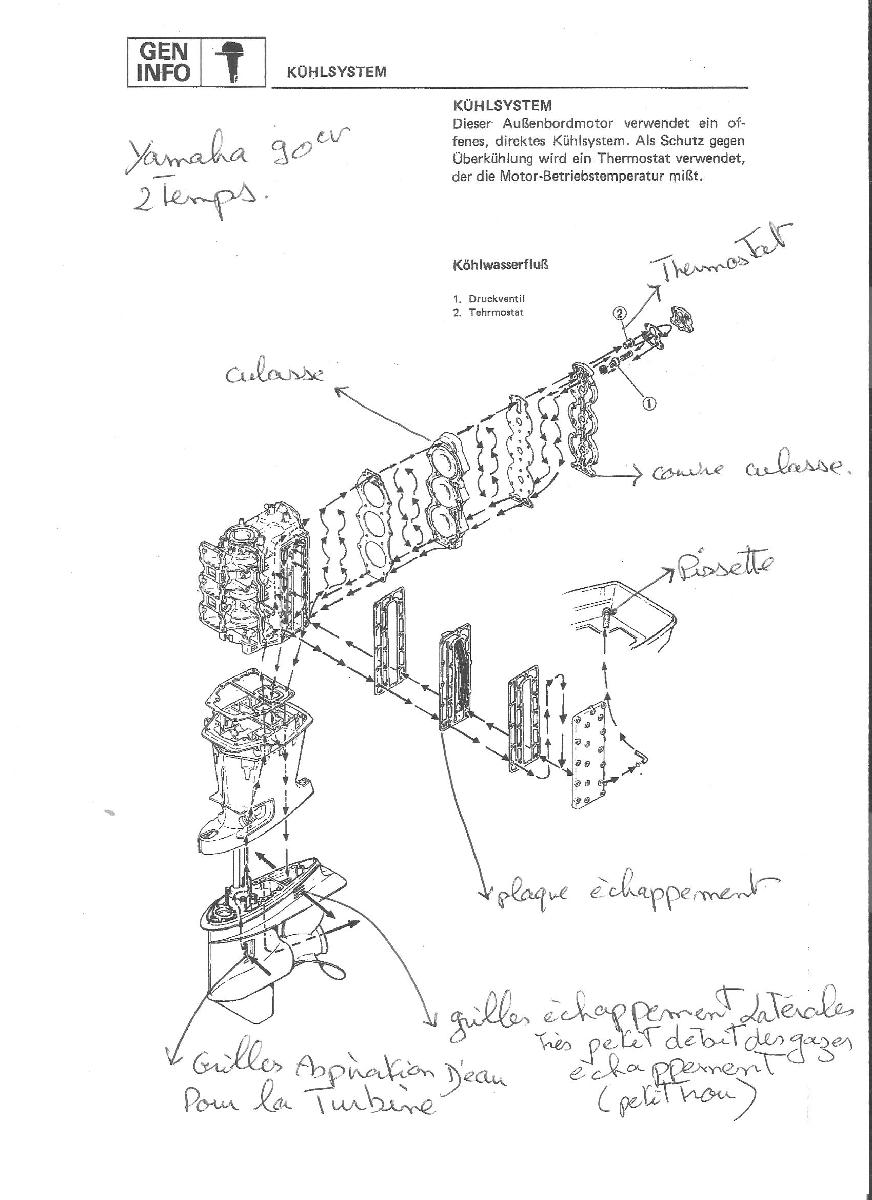 GEN
INFO
KÜHLSYSTEM
KÜHLSYSTEM
Dieser Außenbordmotor verwendet ein of-
fenes, direktes Kühlsystem. Als Schutz gegen
Überkühlung wird ein Thermostat verwendet,
der die Motor-Betriebstemperatur mißt.
Yamaha 90cv
2 Temps.
Köhlwasserfluß
1. Druckventil
2. Tehrmostat
Thermostat
2
1
culasse
contre culasse.
Pissette
plaque èchappement
grilles èchappement Latérales
très petit debit des gazes
èchappement
(petit trou)
Grilles Aspiration D'eau
Pour la Turbine